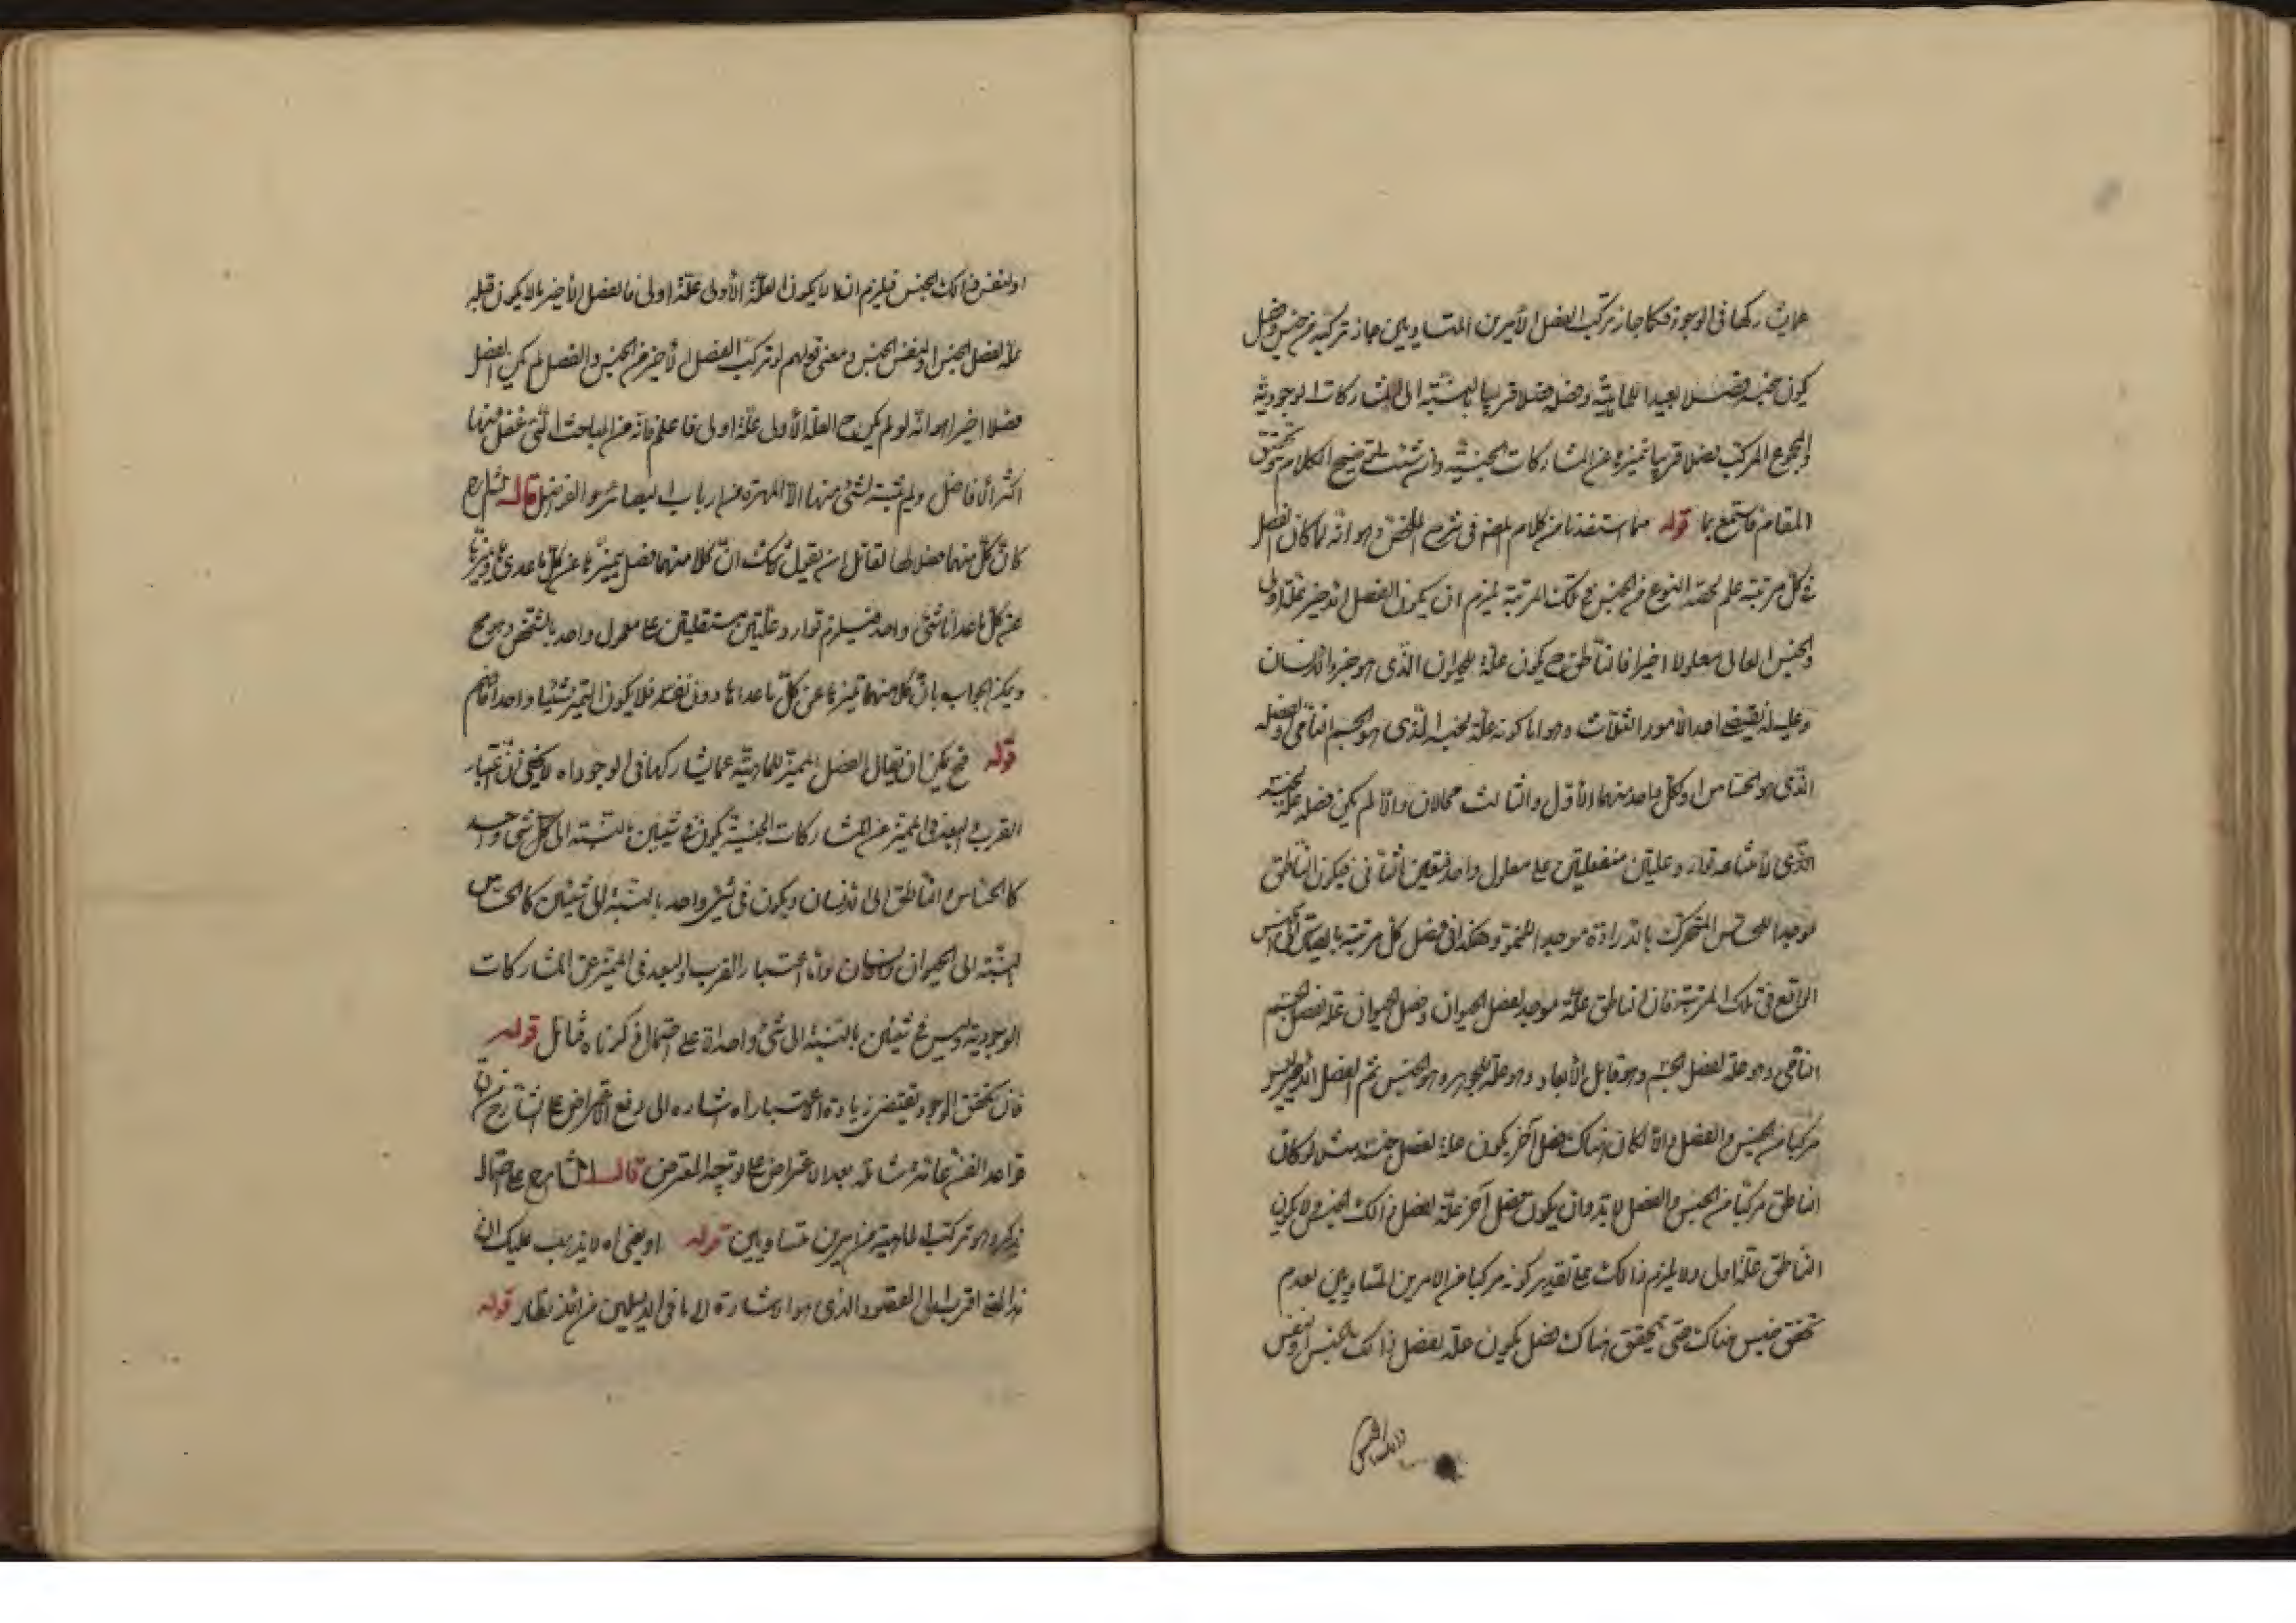 عما يشاركها في الوجود فكما جاز تركب الفصل الأمرين المتساويين جاز تركبه من جنس وفصل
يكون جنسه فصلا بعيدا للماهية وفصله فصلا قريبا بالنسبة الى المشاركات الوجودية
والمجموع المركب فصلا قريبا تميزه عن المشاركات الجنسية وان شئت توضيح الكلام وتحقيق
المقام فاستمع بما قوله مما استفدنا من كلام المص في شرح الملخص وهو انه لما كان الفصل
في كل مرتبة علم لحصة النوع من الجنس في تلك المرتبة يلزم ان يكون الفصل الاخير علة اولى
والجنس العالى معلولا اخيرا فالناطق ح يكون علة للحيوان الذى هو جزء الانسان
وعليته يقتضى احد الأمور الثلاث وهو اما كونه علة لجنسه الذى هو الجسم النامى او لفصله
الذى هو الحساس او لكل واحد منهما والأول والثالث محالان والا لم يكن فصله علة لجنسه
الذى لامتناعه توارد علتين منفصلتين على معلول واحد فتعين الثانى فيكون الناطق
موجدا للحساس المتحرك بالارادة موجدا للنمو وهكذا في فصل كل مرتبة بالقياس الى الجنس
الواقع في تلك المرتبة فان الناطق علة موجد لفصل الحيوان وفصل الحيوان علة لفصل الجسم
النامى وهو علة لفصل الجسم وهو قابل الأبعاد وهو علة للجوهر وهو الجنس ثم الفصل الاخير ليس
مركبا من الجنس والفصل والا لكان هناك فصل آخر يكون علة لفصل جنسه مثلا لو كان
الناطق مركبا من الجنس والفصل لا بد وان يكون فصل آخر علة لفصل ذلك الجنس ولا يكون
الناطق علة اولى ولا يلزم ذلك على تقدير كونه مركبا من الامرين المتساويين لعدم
تحقق جنس هناك حتى يتحقق هناك فصل يكون علة لفصل ذلك الجنس او لنفس
او لنفس ذلك الجنس فيلزم ان لا يكون العلة الأولى علة اولى فالفصل الأخير ما لا يكون قبله
علة لفصل الجنس او لنفس الجنس ومعنى قولهم لو تركب الفصل الأخير من الجنس والفصل لم يكن الفصل
فصلا اخيرا هو انه لو لم يكن ح العلة الأولى علة اولى فاعلم فانه من المباحث التى غفل عنها
اكثر الأفاضل ولم يتنبه لشئ منها الا المهرة من ارباب البصائر والفواضل قال الشارح
كان كل منهما فصلا لها لقائل ان يقول لا شك ان كلا منهما فصل يميزها عن كل ما عداها وتميزها
عن كل ما عداها شئ واحد فيلزم توارد علتين مستقلتين على معلول واحد بالشخص وهو مح
ويمكن الجواب بان كلا منهما تميزها عن كل ما عداها دون نفسه فلا يكون التميز شيئا واحدا فافهم
قوله فح يمكن ان يقال الفصل المميز للماهية عما يشاركها في الوجود اه لا يخفى ان اعتبار
القرب والبعد في المميز عن المشاركات الجنسية يكون في شيئين بالنسبة الى كل شئ واحد
كالحساس والناطق الى الانسان ويكون في شئ واحد بالنسبة الى شيئين كالحساس
بالنسبة الى الحيوان والانسان واما اعتبار القرب والبعد في المميز عن المشاركات
الوجودية وليس في شيئين بالنسبة الى شئ واحد الا على احتمال ذكرناه فتأمل قوله
فان تحقق الوجود يقتضى زيادة الاعتبار اه اشارة الى رفع الاعتراض على الشارح من ان
قواعد الفن عامة شاملة بعد الاعتراض على توجه المعترض قال الشارح على احتمال
يذكره وهو تركب الماهية من امرين متساويين قوله او يفنى اه لا يذهب عليك ان
هذا المعنى اقرب الى المقصود الذى هو الاشارة الى ما في الدليلين من الانظار قوله